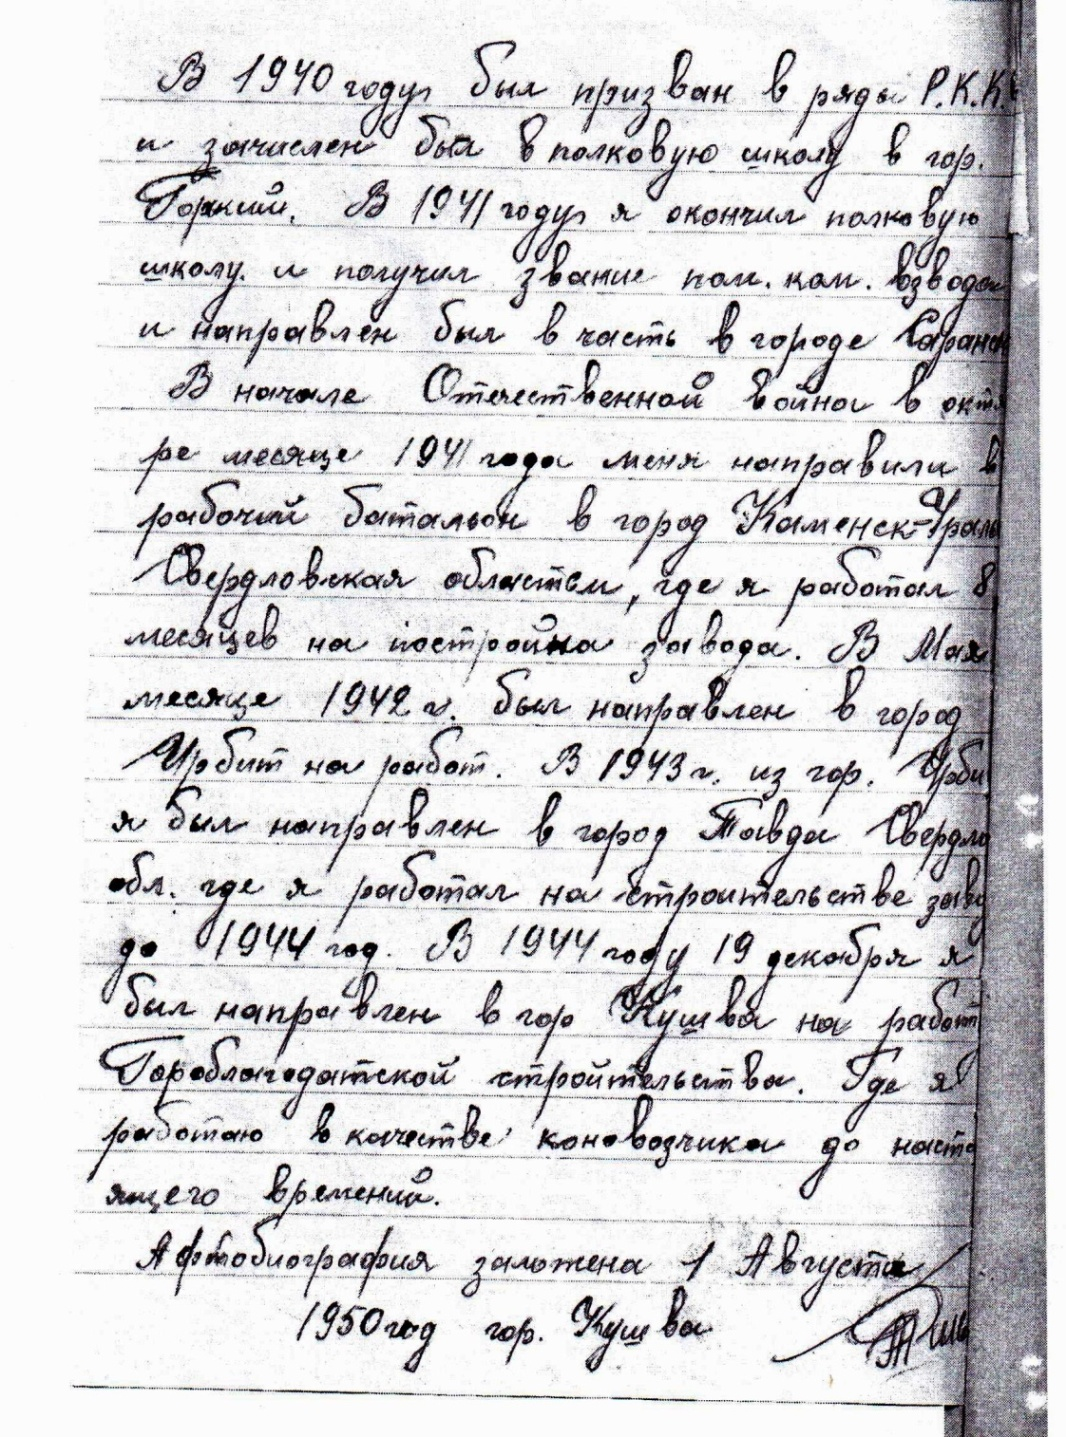 В 1940 году был призван в ряды Р.К.К.
и зачислен был в полковую школу в гор.
Горкий. В 1941 году я окончил полковую
школу. и получил звание пом. ком. взвода
и направлен был в часть в городе Саранск
В начале Отечественной война в октя
ре месяце 1941 года меня направили в
рабочий батальон в город Каменск-Ураль
Свердловская областьи, где я работал 8
месяцев на постройка завода. В Мая
месяце 1942 г. был направлен в город
Ирбит на работ. В 1943 г. из гор. Ирби
я был направлен в город Тавда Свердло
обл. где я работал на строительстве заво
до 1944 год. В 1944 году 19 декабря я
был направлен в гор Кушва на работ
Гороблагодатской строительства. Где я
работаю в качестве коновозчика до насто
ящего времений.
Афтобиография заложена 1 Августа
1950 год гор. Кушва